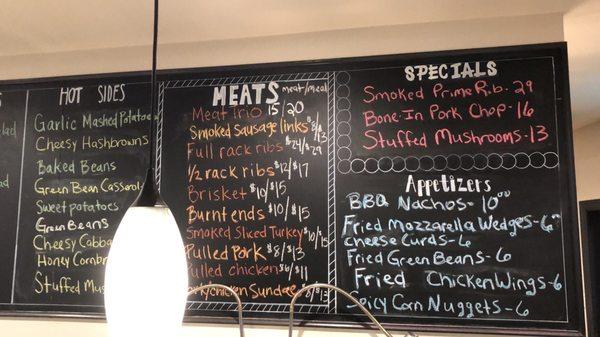 HOT SIDES
Garlic Mashed Potatoes
Cheesy Hashbrowns
Baked Beans
Green Bean Casserol
Sweet potatoes
Green Beans
Cheesy Cabba
Honey Cornbr
Stuffed Mus
MEATS meat/meal
Meat Trio 15/20
Smoked Sausage links $8/$13
Full rack ribs $24/$29
1/2 rack ribs $12/$17
Brisket $10/$15
Burnt ends $10/$15
Smoked Sliced Turkey $10/$15
Pulled Pork $8/$13
Pulled chicken $6/$11
chicken Sundae $8/$13
SPECIALS
Smoked Prime Rib - 29
Bone-In Pork Chop - 16
Stuffed Mushrooms - 13
Appetizers
BBQ Nachos - 10.00
Fried Mozzarella Wedges - 6
cheese Curds - 6
Fried Green Beans - 6
Fried Chicken Wings - 6
Spicy Corn Nuggets - 6